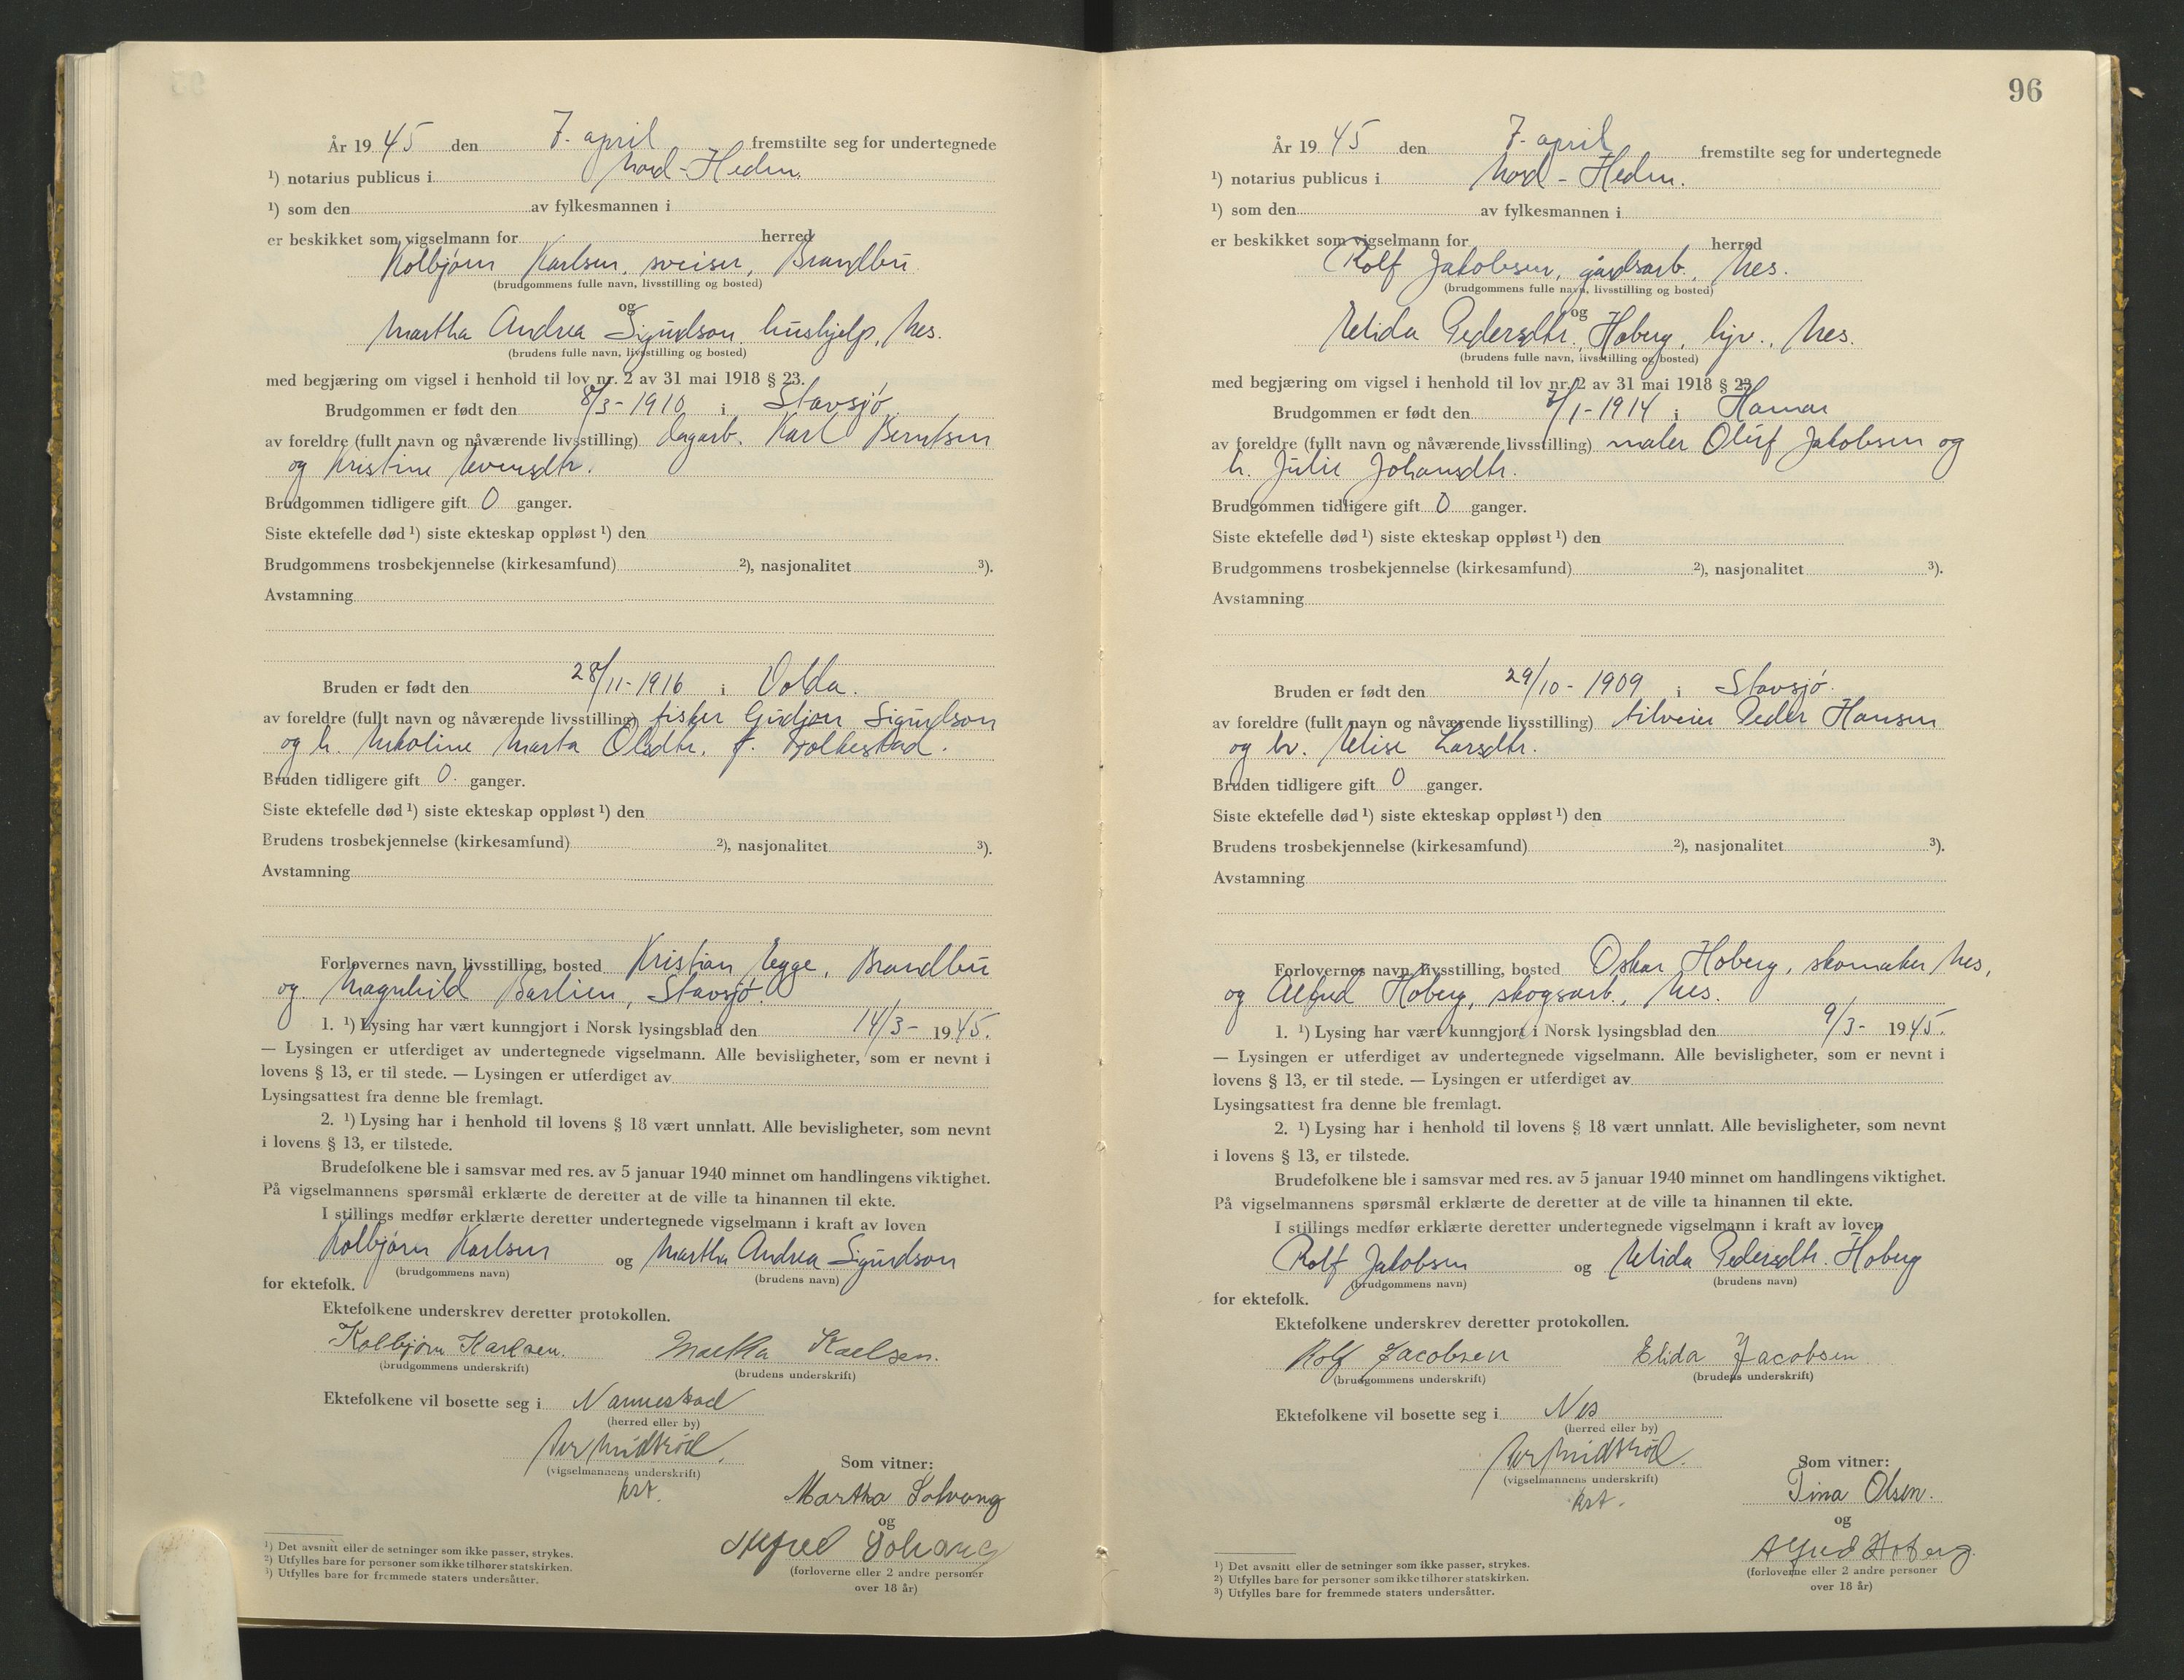 År 1945 den 7. april fremstilte seg for undertegnede
1) notarius publicus i Nord-Hedm.
1) som den av fylkesmannen i
er beskikket som vigselmann for herred
Kolbjørn Karlsen, sveiser, Brandbu
(brudgommens fulle navn, livsstilling og bosted)
og
Martha Andrea Sigurdson, hushjelp, Nes.
(brudens fulle navn, livsstilling og bosted)
med begjæring om vigsel i henhold til lov nr. 2 av 31 mai 1918 § 23.
Brudgommen er født den 8/3-1910 i Stavsjø
av foreldre (fullt navn og nåværende livsstilling) dagarb. Karl Berntsen
og Kristine Evensdtr.
Brudgommen tidligere gift 0 ganger.
Siste ektefelle død 1) siste ekteskap oppløst 1) den
Brudgommens trosbekjennelse (kirkesamfund) 2), nasjonalitet 3).
Avstamning
Bruden er født den 28/11-1916 i Volda.
av foreldre (fullt navn og nåværende livsstilling) fisker Gudjon Sigurdson
og h. Nikoline Marta Olsdtr. f. Folkestad.
Bruden tidligere gift 0. ganger.
Siste ektefelle død 1) siste ekteskap oppløst 1) den
Brudens trosbekjennelse (kirkesamfund) 2), nasjonalitet 3).
Avstamning
Forlovernes navn, livsstilling, bosted Kristian Egge, Brandbu
og Magnhild Barlien, Stavsjø.
1. 1) Lysing har vært kunngjort i Norsk lysingsblad den 14/3- 1945.
— Lysingen er utferdiget av undertegnede vigselmann. Alle bevisligheter, som er nevnt i
lovens § 13, er til stede. — Lysingen er utferdiget av
Lysingsattest fra denne ble fremlagt.
2. 1) Lysing har i henhold til lovens § 18 vært unnlatt. Alle bevisligheter, som nevnt
i lovens § 13, er tilstede.
Brudefolkene ble i samsvar med res. av 5 januar 1940 minnet om handlingens viktighet.
På vigselmannens spørsmål erklærte de deretter at de ville ta hinannen til ekte.
I stillings medfør erklærte deretter undertegnede vigselmann i kraft av loven
Kolbjørn Karlsen og Martha Andrea Sigurdson
(brudgommens navn) (brudens navn)
for ektefolk.
Ektefolkene underskrev deretter protokollen.
Kolbjørn Karlsen. Martha Karlsen.
(brudgommens underskrift) (brudens underskrift)
Ektefolkene vil bosette seg i Nannestad
(herred eller by)
Per Midtrød.
(vigselmannens underskrift)
kst.
Som vitner:
Martha Solvang
og
Alfred Solvang
(forloverne eller 2 andre personer
over 18 år)
1) Det avsnitt eller de setninger som ikke passer, strykes.
2) Utfylles bare for personer som ikke tilhører statskirken.
3) Utfylles bare for fremmede staters undersåtter.
96
År 1945 den 7. april fremstilte seg for undertegnede
1) notarius publicus i Nord-Hedm.
1) som den av fylkesmannen i
er beskikket som vigselmann for herred
Rolf Jakobsen, gårdsarb., Nes.
(brudgommens fulle navn, livsstilling og bosted)
og
Elida Pedersdtr. Hoberg, hjv., Nes.
(brudens fulle navn, livsstilling og bosted)
med begjæring om vigsel i henhold til lov nr. 2 av 31 mai 1918 § 23
Brudgommen er født den /1-1914 i Hamar
av foreldre (fullt navn og nåværende livsstilling) maler Oluf Jakobsen og
h. Julie Johansdtr.
Brudgommen tidligere gift 0 ganger.
Siste ektefelle død 1) siste ekteskap oppløst 1) den
Brudgommens trosbekjennelse (kirkesamfund) 2), nasjonalitet 3).
Avstamning
Bruden er født den 29/10-1909 i Stavsjø.
av foreldre (fullt navn og nåværende livsstilling) Peder Hansen
og h. Elise Larsdtr.
Bruden tidligere gift 0 ganger.
Siste ektefelle død 1) siste ekteskap oppløst 1) den
Brudens trosbekjennelse (kirkesamfund) 2), nasjonalitet 3).
Avstamning
Forlovernes navn, livsstilling, bosted Oskar Hoberg, skomaker Nes,
og Alfred Hoberg, skogsarb., Nes.
1. 1) Lysing har vært kunngjort i Norsk lysingsblad den 9/3- 1945.
— Lysingen er utferdiget av undertegnede vigselmann. Alle bevisligheter, som er nevnt i
lovens § 13, er til stede. — Lysingen er utferdiget av
Lysingsattest fra denne ble fremlagt.
2. 1) Lysing har i henhold til lovens § 18 vært unnlatt. Alle bevisligheter, som nevnt
i lovens § 13, er tilstede.
Brudefolkene ble i samsvar med res. av 5 januar 1940 minnet om handlingens viktighet.
På vigselmannens spørsmål erklærte de deretter at de ville ta hinannen til ekte.
I stillings medfør erklærte deretter undertegnede vigselmann i kraft av loven
Rolf Jakobsen og Elida Pedersdtr. Hoberg
(brudgommens navn) (brudens navn)
for ektefolk.
Ektefolkene underskrev deretter protokollen.
Rolf Jacobsen Elida Jacobsen
(brudgommens underskrift) (brudens underskrift)
Ektefolkene vil bosette seg i Nes
(herred eller by)
Per Midtrød.
(vigselmannens underskrift)
kst.
Som vitner:
Tina Olsen.
og
Alfred Hoberg.
(forloverne eller 2 andre personer
over 18 år)
1) Det avsnitt eller de setninger som ikke passer, strykes.
2) Utfylles bare for personer som ikke tilhører statskirken.
3) Utfylles bare for fremmede staters undersåtter.